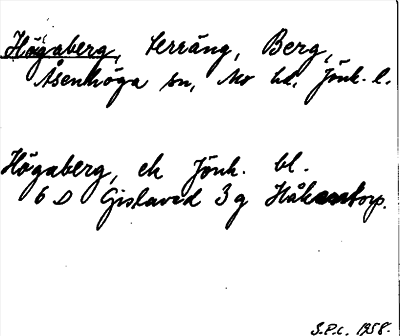 Högaberg, terräng, Berg,
Åsenhöga sn, Mo hd, Jönk. l.
Högaberg, ek Jönk. bl.
6 D Gislaved 3 g Håkentorp.
S.P.C. 1958.